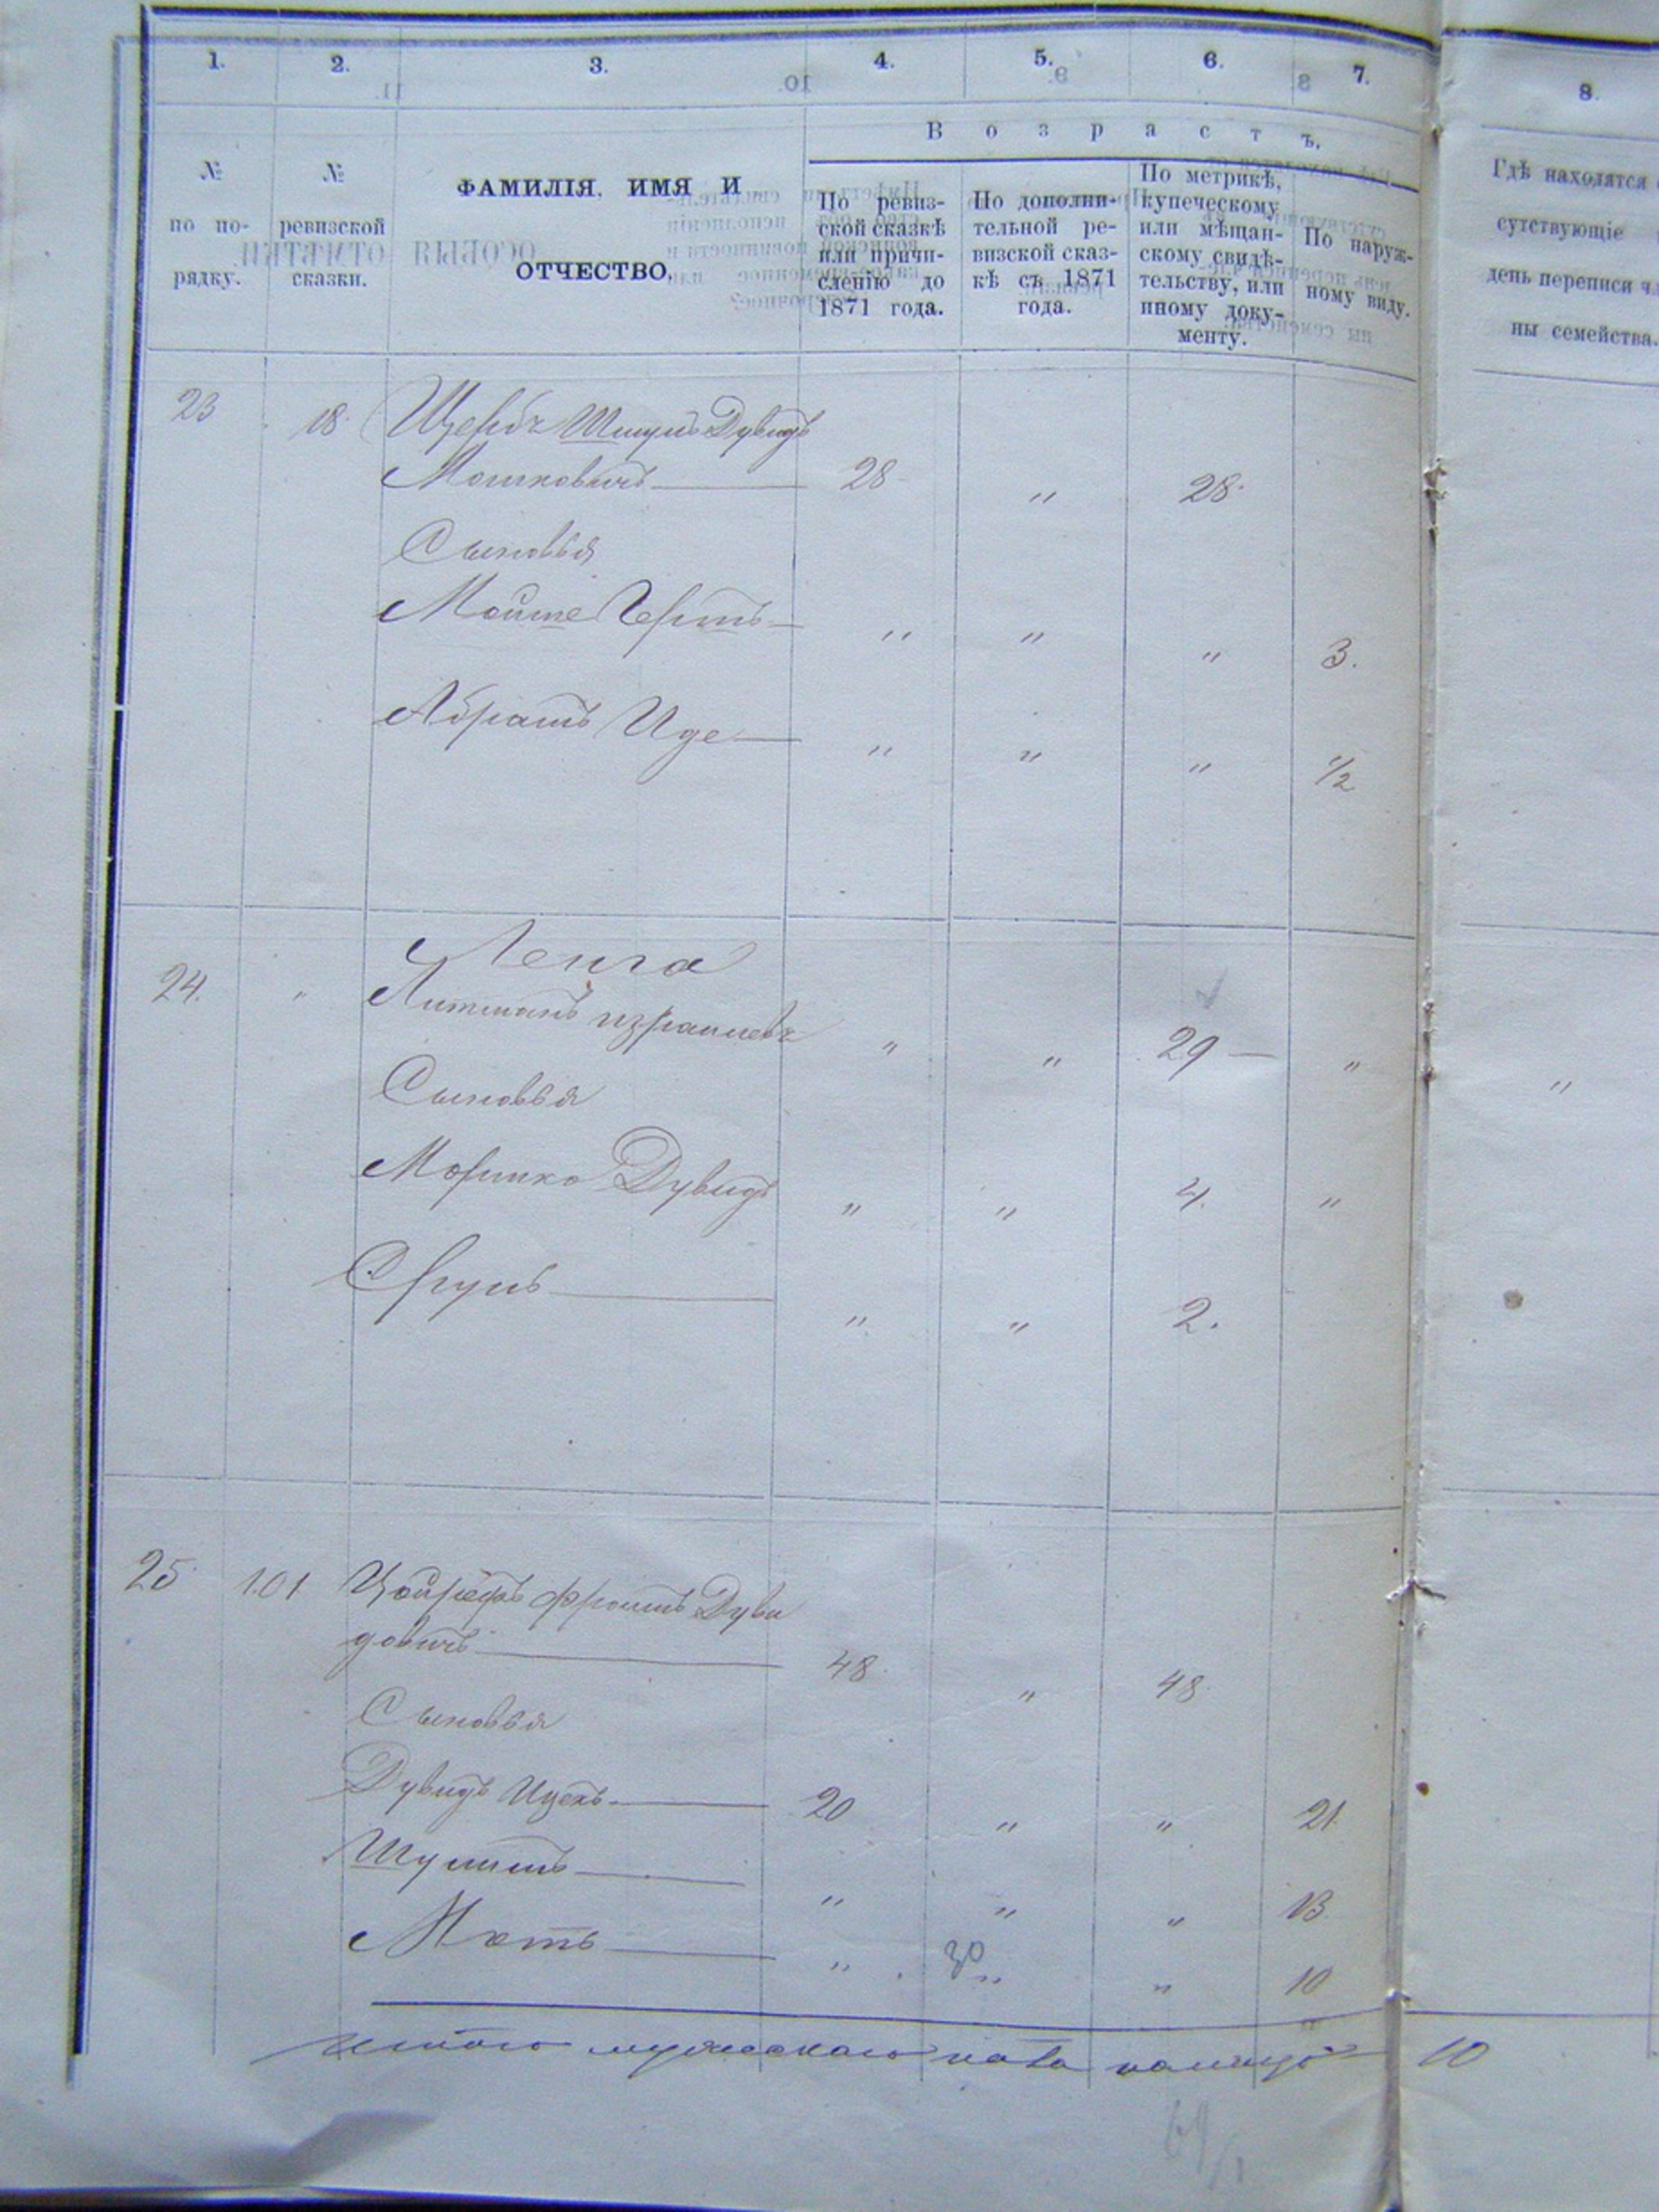 1. 2. 3. 4. 5. 6. 7. 8.
В о з р а с т ъ.
№ по по-рядку.
№ ревизской сказки.
ФАМИЛІЯ, ИМЯ И
ОТЧЕСТВО.
По ревиз-
ской сказкѣ
или причи-
сленію до
1871 года.
По дополни-
тельной ре-
визской сказ-
кѣ съ 1871
года.
По метрикѣ,
купеческому
или мѣщан-
скому свидѣ-
тельству, или
иному доку-
менту.
По наруж-
ному виду.
Гдѣ находятся
сутствующіе
день переписи
ны семейства.
23 18. Дувидъ
Мошковичъ 28 " 28.
Сыновья
" " " 3.
Абрамъ Иде " " " 1/2
24. " Ленга
Литманъ " " 29 " "
Сыновья
Мошко Дувидъ " " 4. "
Сруль " " 2.
25 101 Дуви
довичъ 48. " 48.
Сыновья
Дувидъ Ицекъ 20 " " 21.
Шулимъ " " " 13.
" 30 " " 10
итого мужескаго пола налицо 10
69/1